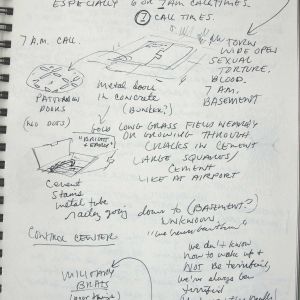 ESPECIALLY 6 OR 7 AM CALLTIMES.
① CALL TIMES.
7 A.M. CALL.
TORSO
WIDE OPEN
SEXUAL
TORTURE.
BLOOD.
7 A.M.
BASEMENT
PATTERNED
HOLES
(NO DOTS)
METAL DOOR
IN CONCRETE
(BUNKER?)
LONG GRASS FIELD
OR GROWING THROUGH
CRACKS IN CEMENT
LARGE SQUARES/
CEMENT
LIKE AT AIRPORT
"BRIGHT
+ EARLY"
Cement
Stairs
metal tube
going down to (BASEMENT?)
UNKNOWN.
CONTROL CENTER
MILITARY
BRATS
we don't know
how to wake up +
NOT BE terrified,
we've always been
terrified